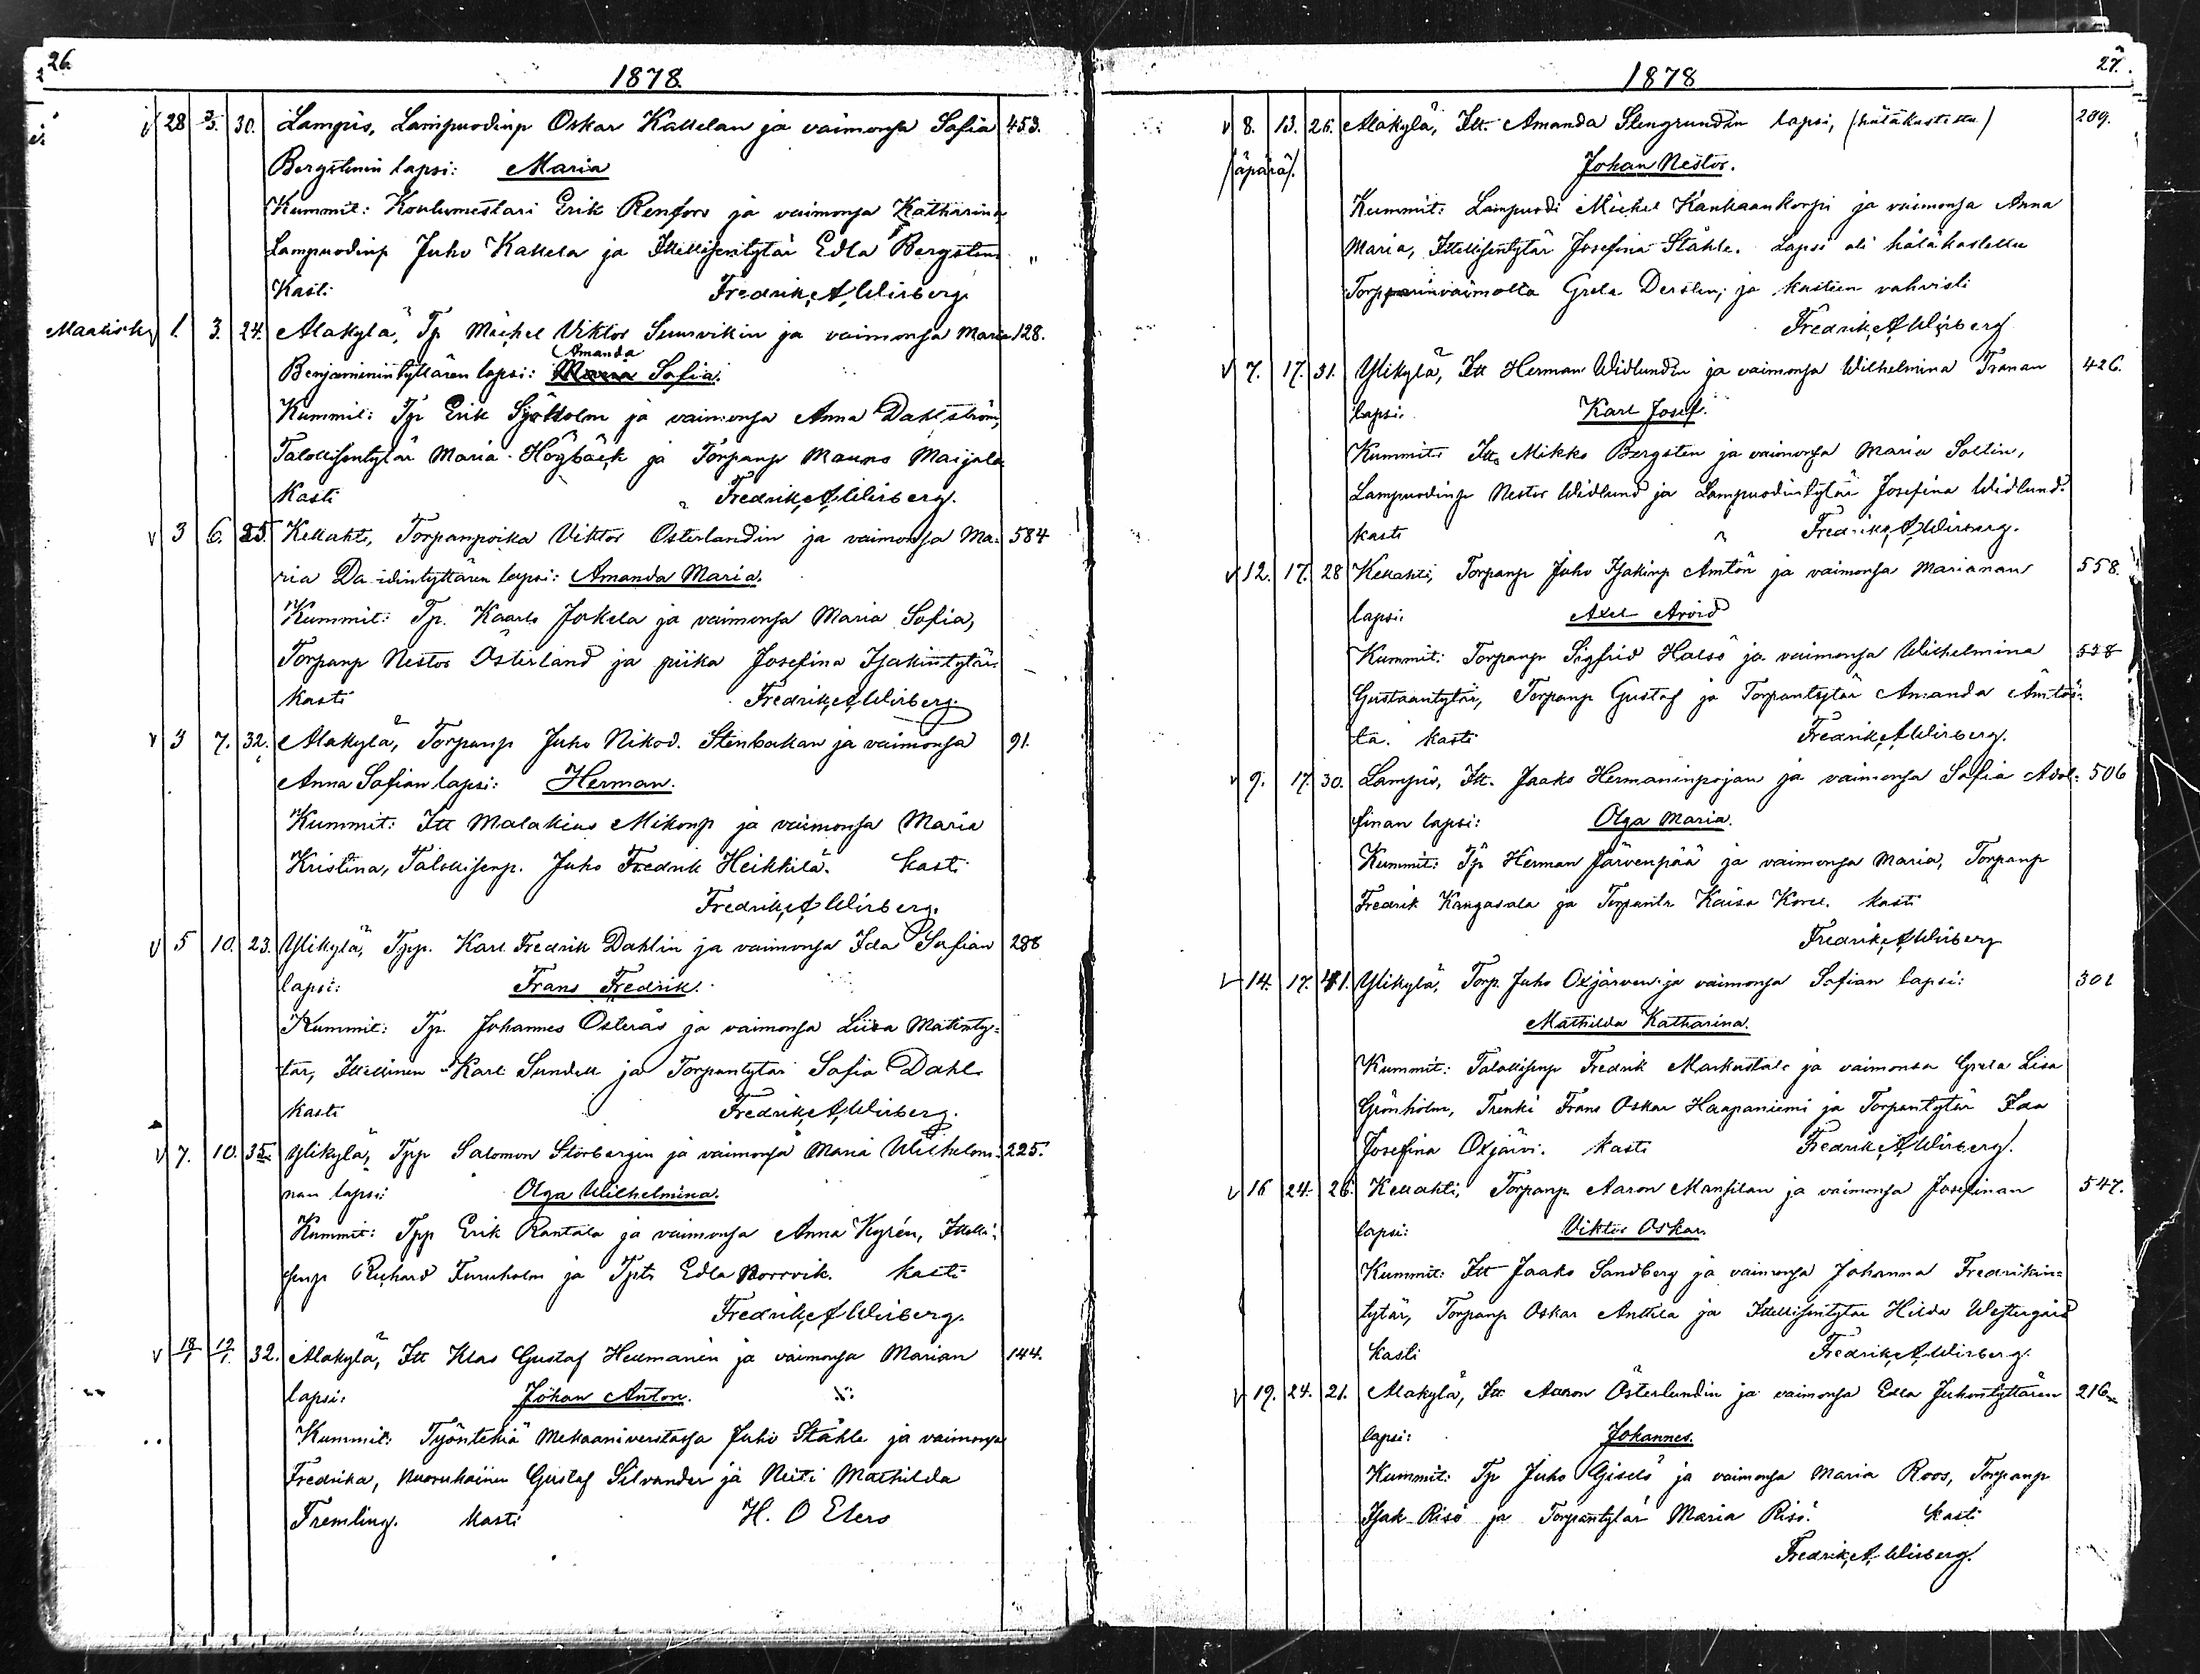 26.
1878.
v 28 3/3. 30. Lampis, Lampuodinp Oskar Kallelan ja vaimonsa Sofia 453.
Bergstenin lapsi: Maria
Kummit: Koulumestari Erik Renfors ja vaimonsa Katharina,
Lampuodinp Juho Kallela ja Itellisentytär Edla Bergsten "
Kasti Fredrik A Wirberg.
Maalisk. 1. 3. 24. Alakylä, Tp. Michel Viktor Suursvikin ja vaimonsa Maria 128.
Amanda
Benjaminintyttären lapsi: Maria Sofia.
Kummit: Tp Erik Sjöholm ja vaimonsa Anna Dahlström,
Talollisentytär Maria Högbäck ja Torpanp Mauno Maijala
Kasti Fredrik A Wirberg.
v 3 6. 25. Kellahti, Torpanpoika Viktor Österlandin ja vaimonsa Ma- 584
ria Da idintyttären lapsi: Amanda Maria.
Kummit: Tp. Kaarlo Jokela ja vaimonsa Maria Sofia,
Torpanp Nestor Österland ja piika Josefina Isakintytär.
Kasti Fredrik A Wirberg.
v 3 7. 32. Alakylä, Torpanp Juho Nikod. Stenbakan ja vaimonsa 91.
Anna Sofian lapsi: Herman.
Kummit: Itt Malakias Mikonp ja vaimonsa Maria
Kristina, Talollisenp. Juho Fredrik Heikkilä. Kasti
Fredrik A Wirberg.
v 5 10. 23. Ylikylä, Tpp. Karl Fredrik Dahlin ja vaimonsa Ida Sofian 288
lapsi: Frans Fredrik.
Kummit: Tp. Johannes Österås ja vaimonsa Liisa Matinty-
tär, Itellinen Karl Sundell ja Torpantytär Sofia Dahl.
Kasti Fredrik A Wirberg.
v 7. 10. 35. Ylikylä, Tpp Salomon Storbergin ja vaimonsa Maria Wilhelmi- 225.
nan lapsi: Olga Wilhelmina.
Kummit: Tpp Erik Rantala ja vaimonsa Anna Kyrén, Itelli-
senp Richard Furuholm ja Tptr Edla Norrvik. Kasti
Fredrik A Wirberg.
v 32. Alakylä, Itt Klas Gustaf Hellmanin ja vaimonsa Marian 144.
lapsi: Johan Anton.
Kummit: Työntekiä Mekaaniverstassa Juho Ståhle ja vaimonsa
Fredrika, Nuorukainen Gustaf Silvander ja Neiti Mathilda
Tremling. Kasti H. O Elers
27.
1878
v 8. 13. 26. Alakylä, Itt. Amanda Stengrundin lapsi, (hätäkastettu) 289.
(äpärä). Johan Nestor.
Kummit: Lampuodi Michel Kankaankorpi ja vaimonsa Anna
Maria, Itellisentytär Josefina Ståhle. Lapsi oli hätäkastettu
Torpparinvaimolta Greta Dersten, ja kasteen vahvisti
Fredrik A Wirberg
v 7. 17. 31. Ylikylä, Itt Herman Widlundin ja vaimonsa Wilhelmina Tranan 426.
lapsi: Karl Josef.
Kummit: Itt. Mikko Bergsten ja vaimonsa Maria Sallin,
Lampuodinp Nestor Widlund ja Lampuodintytär Josefina Widlund.
Kasti Fredrik A Wirberg.
v 12. 17. 28 Kellahti, Torpanp Juho Isakinp Amtön ja vaimonsa Marianan 558.
lapsi: Axel Arvid
Kummit: Torpanp Sigfrid Halsö ja vaimonsa Wilhelmina 558
Gustaantytär, Torpanp Gustaf ja Torpantytär Amanda Amtös-
ta. Kasti Fredrik A Wirberg.
v 9. 17. 30. Lampis, Itt. Jaako Hermaninpojan ja vaimonsa Sofia Adol- 506
finan lapsi: Olga Maria.
Kummit: Tp Herman Järvenpää ja vaimonsa Maria, Torpanp
Fredrik Kangasala ja Torpantr Kaisa Korel. Kasti
Fredrik A Wirberg
v 14. 17. 41. Ylikylä, Torp. Juho Oxjärven ja vaimonsa Sofian lapsi: 301
Mathilda Katharina.
Kummit: Talollisenp Fredrik Markustalo ja vaimonsa Greta Lisa
Grönholm, Trenki Frans Oskar Haapaniemi ja Torpantytär Ida
Josefina Oxjärvi. Kasti Fredrik A Wirberg.
v 16 24. 26. Kellahti, Torpanp Aaron Mansilan ja vaimonsa Josefinan 547.
lapsi: Viktor Oskar.
Kummit: Itt Jaako Sandberg ja vaimonsa Johanna Fredrikin-
tytär, Torpanp Oskar Anttila ja Itellisentytär Hilda Westergård
Kasti Fredrik A Wirberg.
v 19. 24. 21. Alakylä, Itt Aaron Österlundin ja vaimonsa Edla Juhontyttären 216
lapsi: Johannes.
Kummit: Tp Juho Gisslö ja vaimonsa Maria Roos, Torpanp
Isak Risö ja Torpantytär Maria Risö. Kasti
Fredrik A Wirberg.